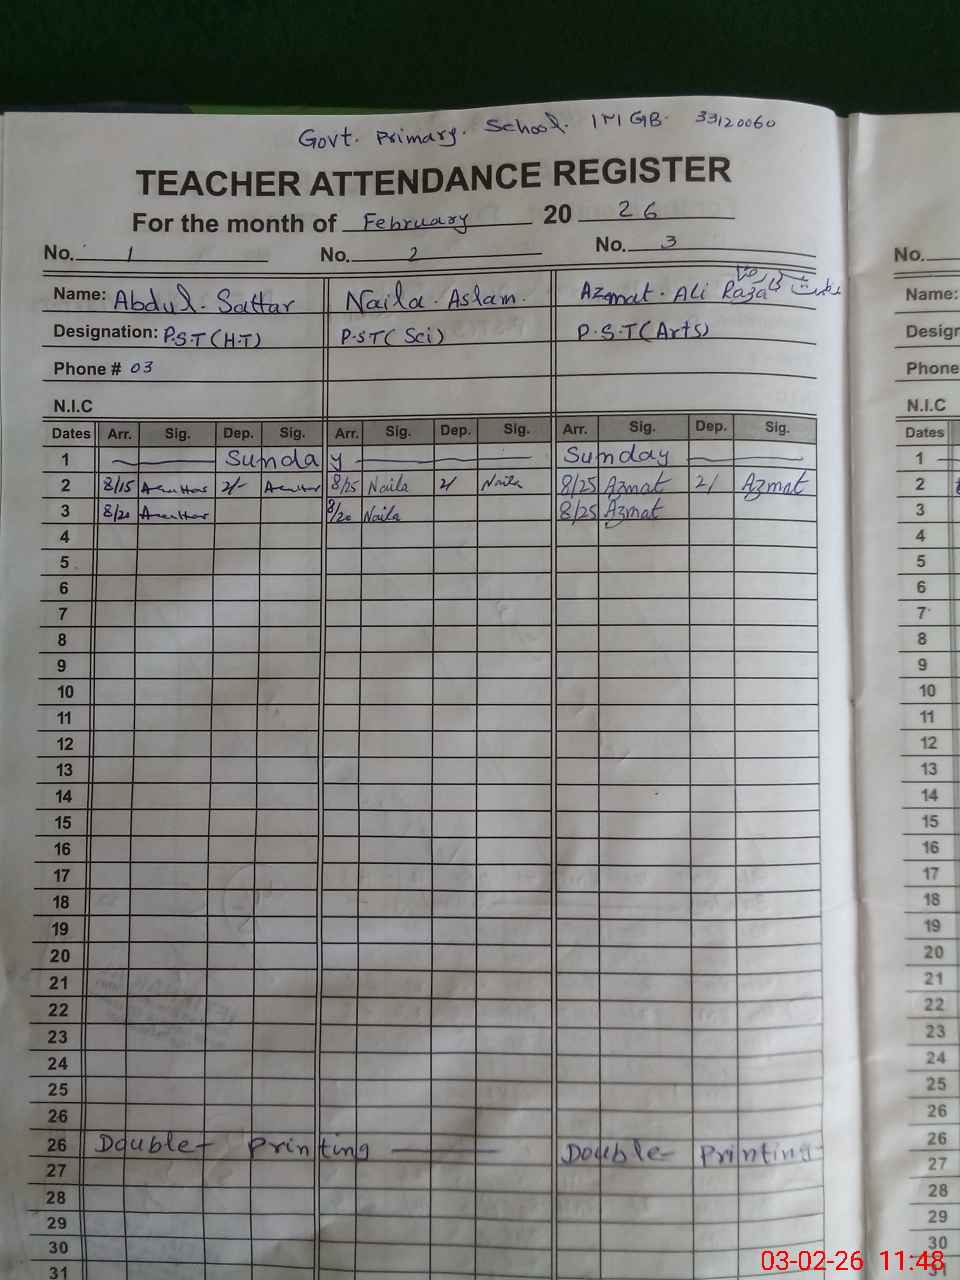 Govt. Primary. School. 33120060
TEACHER ATTENDANCE REGISTER
For the month of February 20 26
No. 1 No. 2 No. 3 No.
Name: Abdul. Sattar Naila. Aslam. Azmat. Ali Raza Name:
Designation: P.S.T (H.T) P.S.T( Sci) P.S.T(Arts) Desigr
Phone # 03 Phone
N.I.C N.I.C
Dates Arr. Sig. Dep. Sig. Arr. Sig. Dep. Sig. Arr. Sig. Dep. Sig. Dates
1 Sunday Sunday 1
2 8/15 2/- 8/25 Naila 2/ Naila 8/25 Azmat 2/ Azmat 2
3 8/20 8/20 Naila 8/25 Azmat 3
4 4
5 5
6 6
7 7
8 8
9 9
10 10
11 11
12 12
13 13
14 14
15 15
16 16
17 17
18 18
19 19
20 20
21 21
22 22
23 23
24 24
25 25
26 26
26 Double- Printing Double- Printing 26
27 27
28 28
29 29
30 30
31 31
03-02-26 11:48